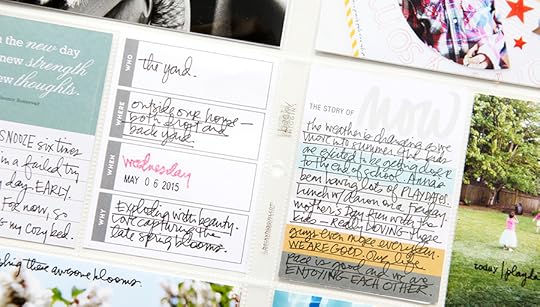 the new day
new strength
new thoughts.
SNOOZE six times
in a failed try
day EARLY.
For now, so
my cozy bed.
WHO
the yard.
WHERE
outside our home -
both front and
back yard.
WHEN
wednesday
MAY 06 2015
WHY
Exploding with beauty.
Love capturing the
late spring blooms.
these awesome blooms.
THE STORY OF
now
the weather is changing as we
move into summer. the kids
are excited to be getting close
to the end of school. Anna's
been having lots of PLAYDATES.
Lunch w/ Aaron on a Friday.
mother's day fun with the
kids - really LOVING these
guys even more everyday.
WE ARE GOOD. Our life
pace is good and we are
ENJOYING EACH OTHER
today | playda